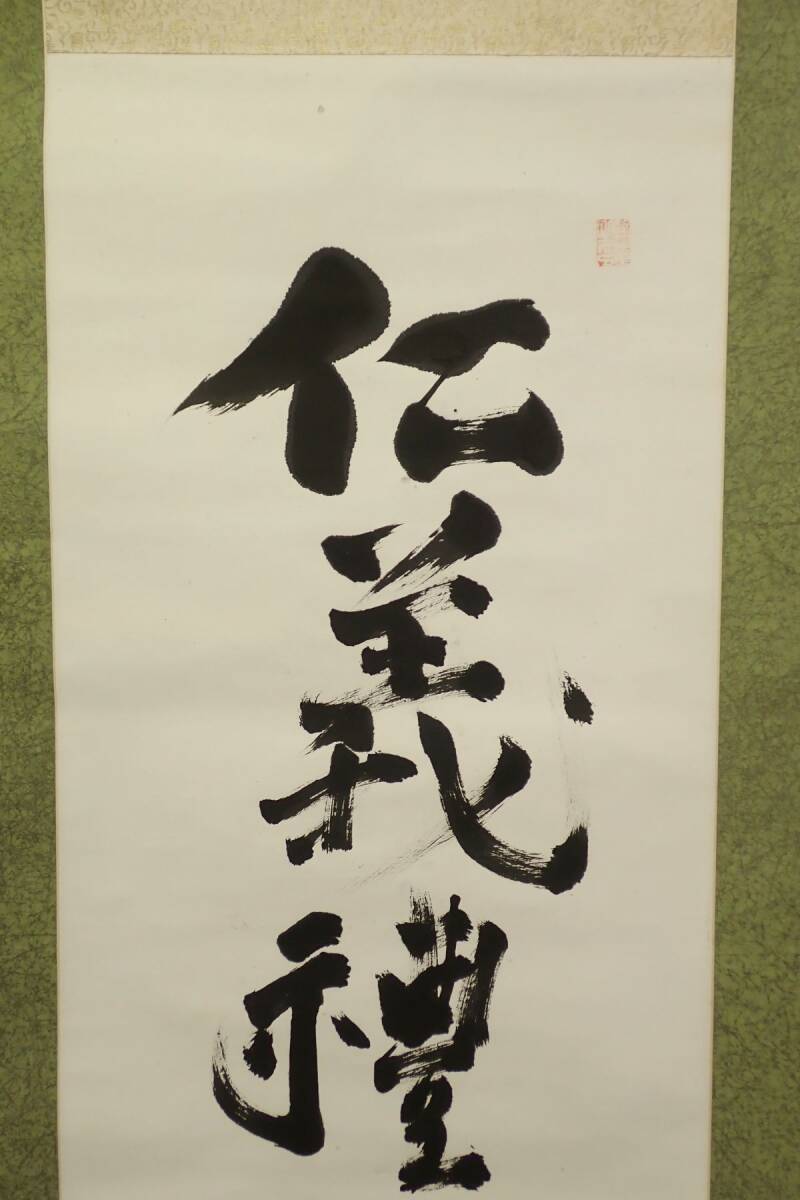 仁義禮